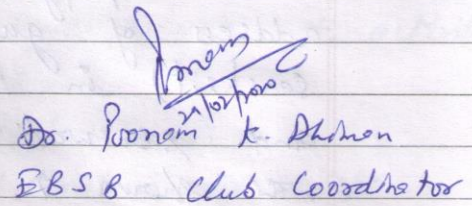 Poonam
29/02/2020
Dr. Poonam K. Dhiman
EBSB Club Coordinator